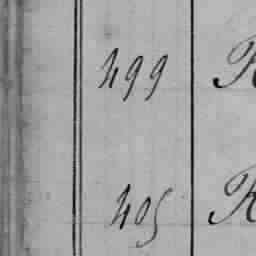 499
405